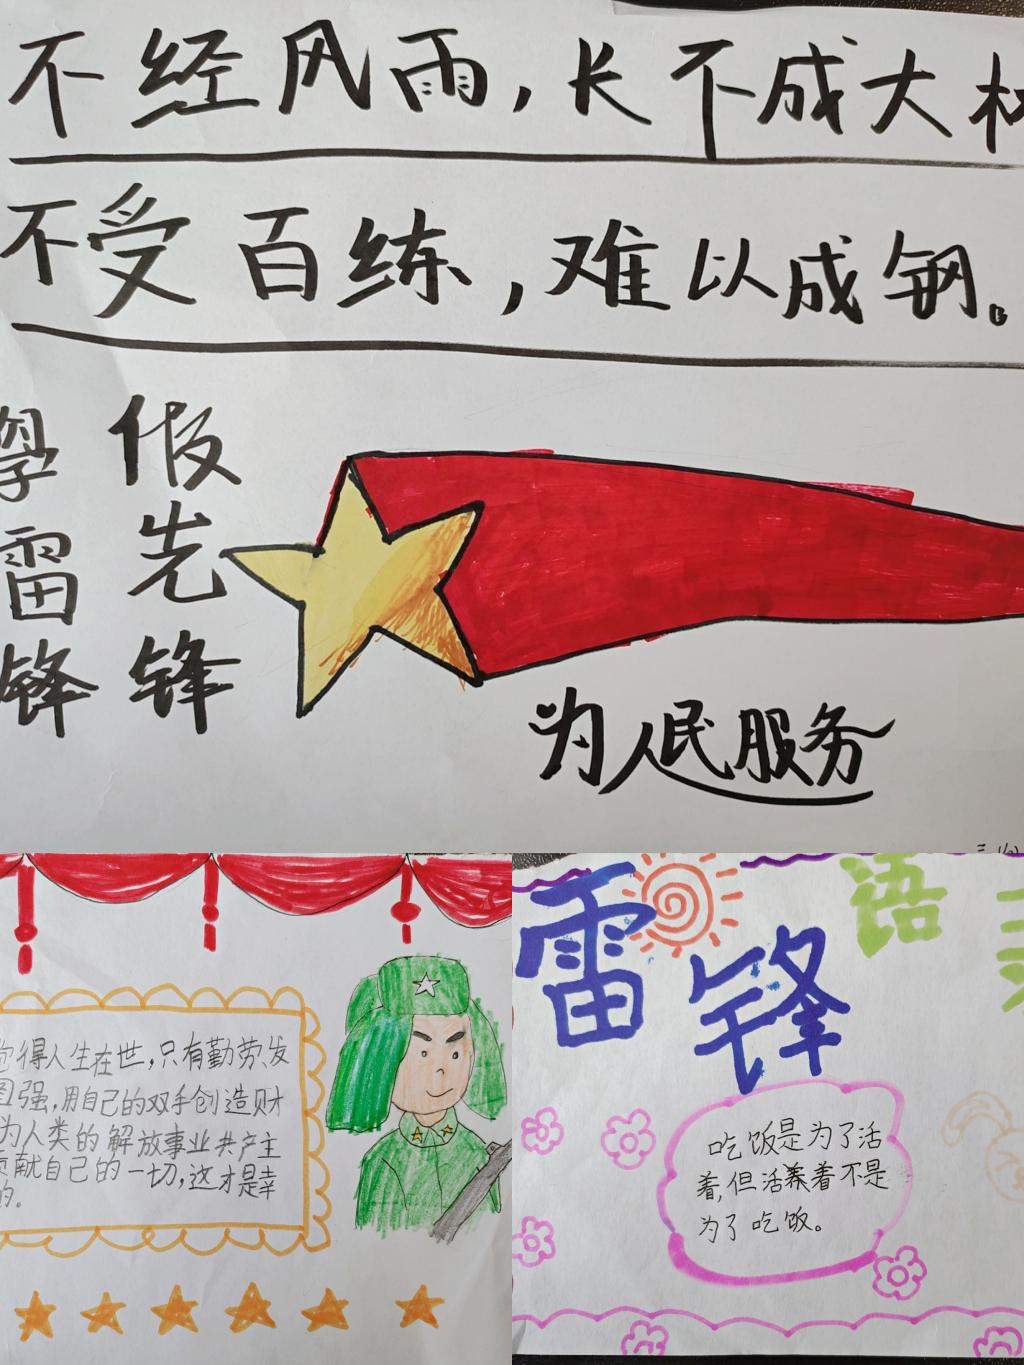 不经风雨，长不成大
不受百练，难以成钢。
学雷锋
做先锋
为人民服务
得人生在世，只有勤劳，发
强，用自己的双手创造财
为人类的解放事业共产主
献自己的一切，这才是幸
的。
雷锋语
吃饭是为了活
着，但活着不是
为了吃饭。